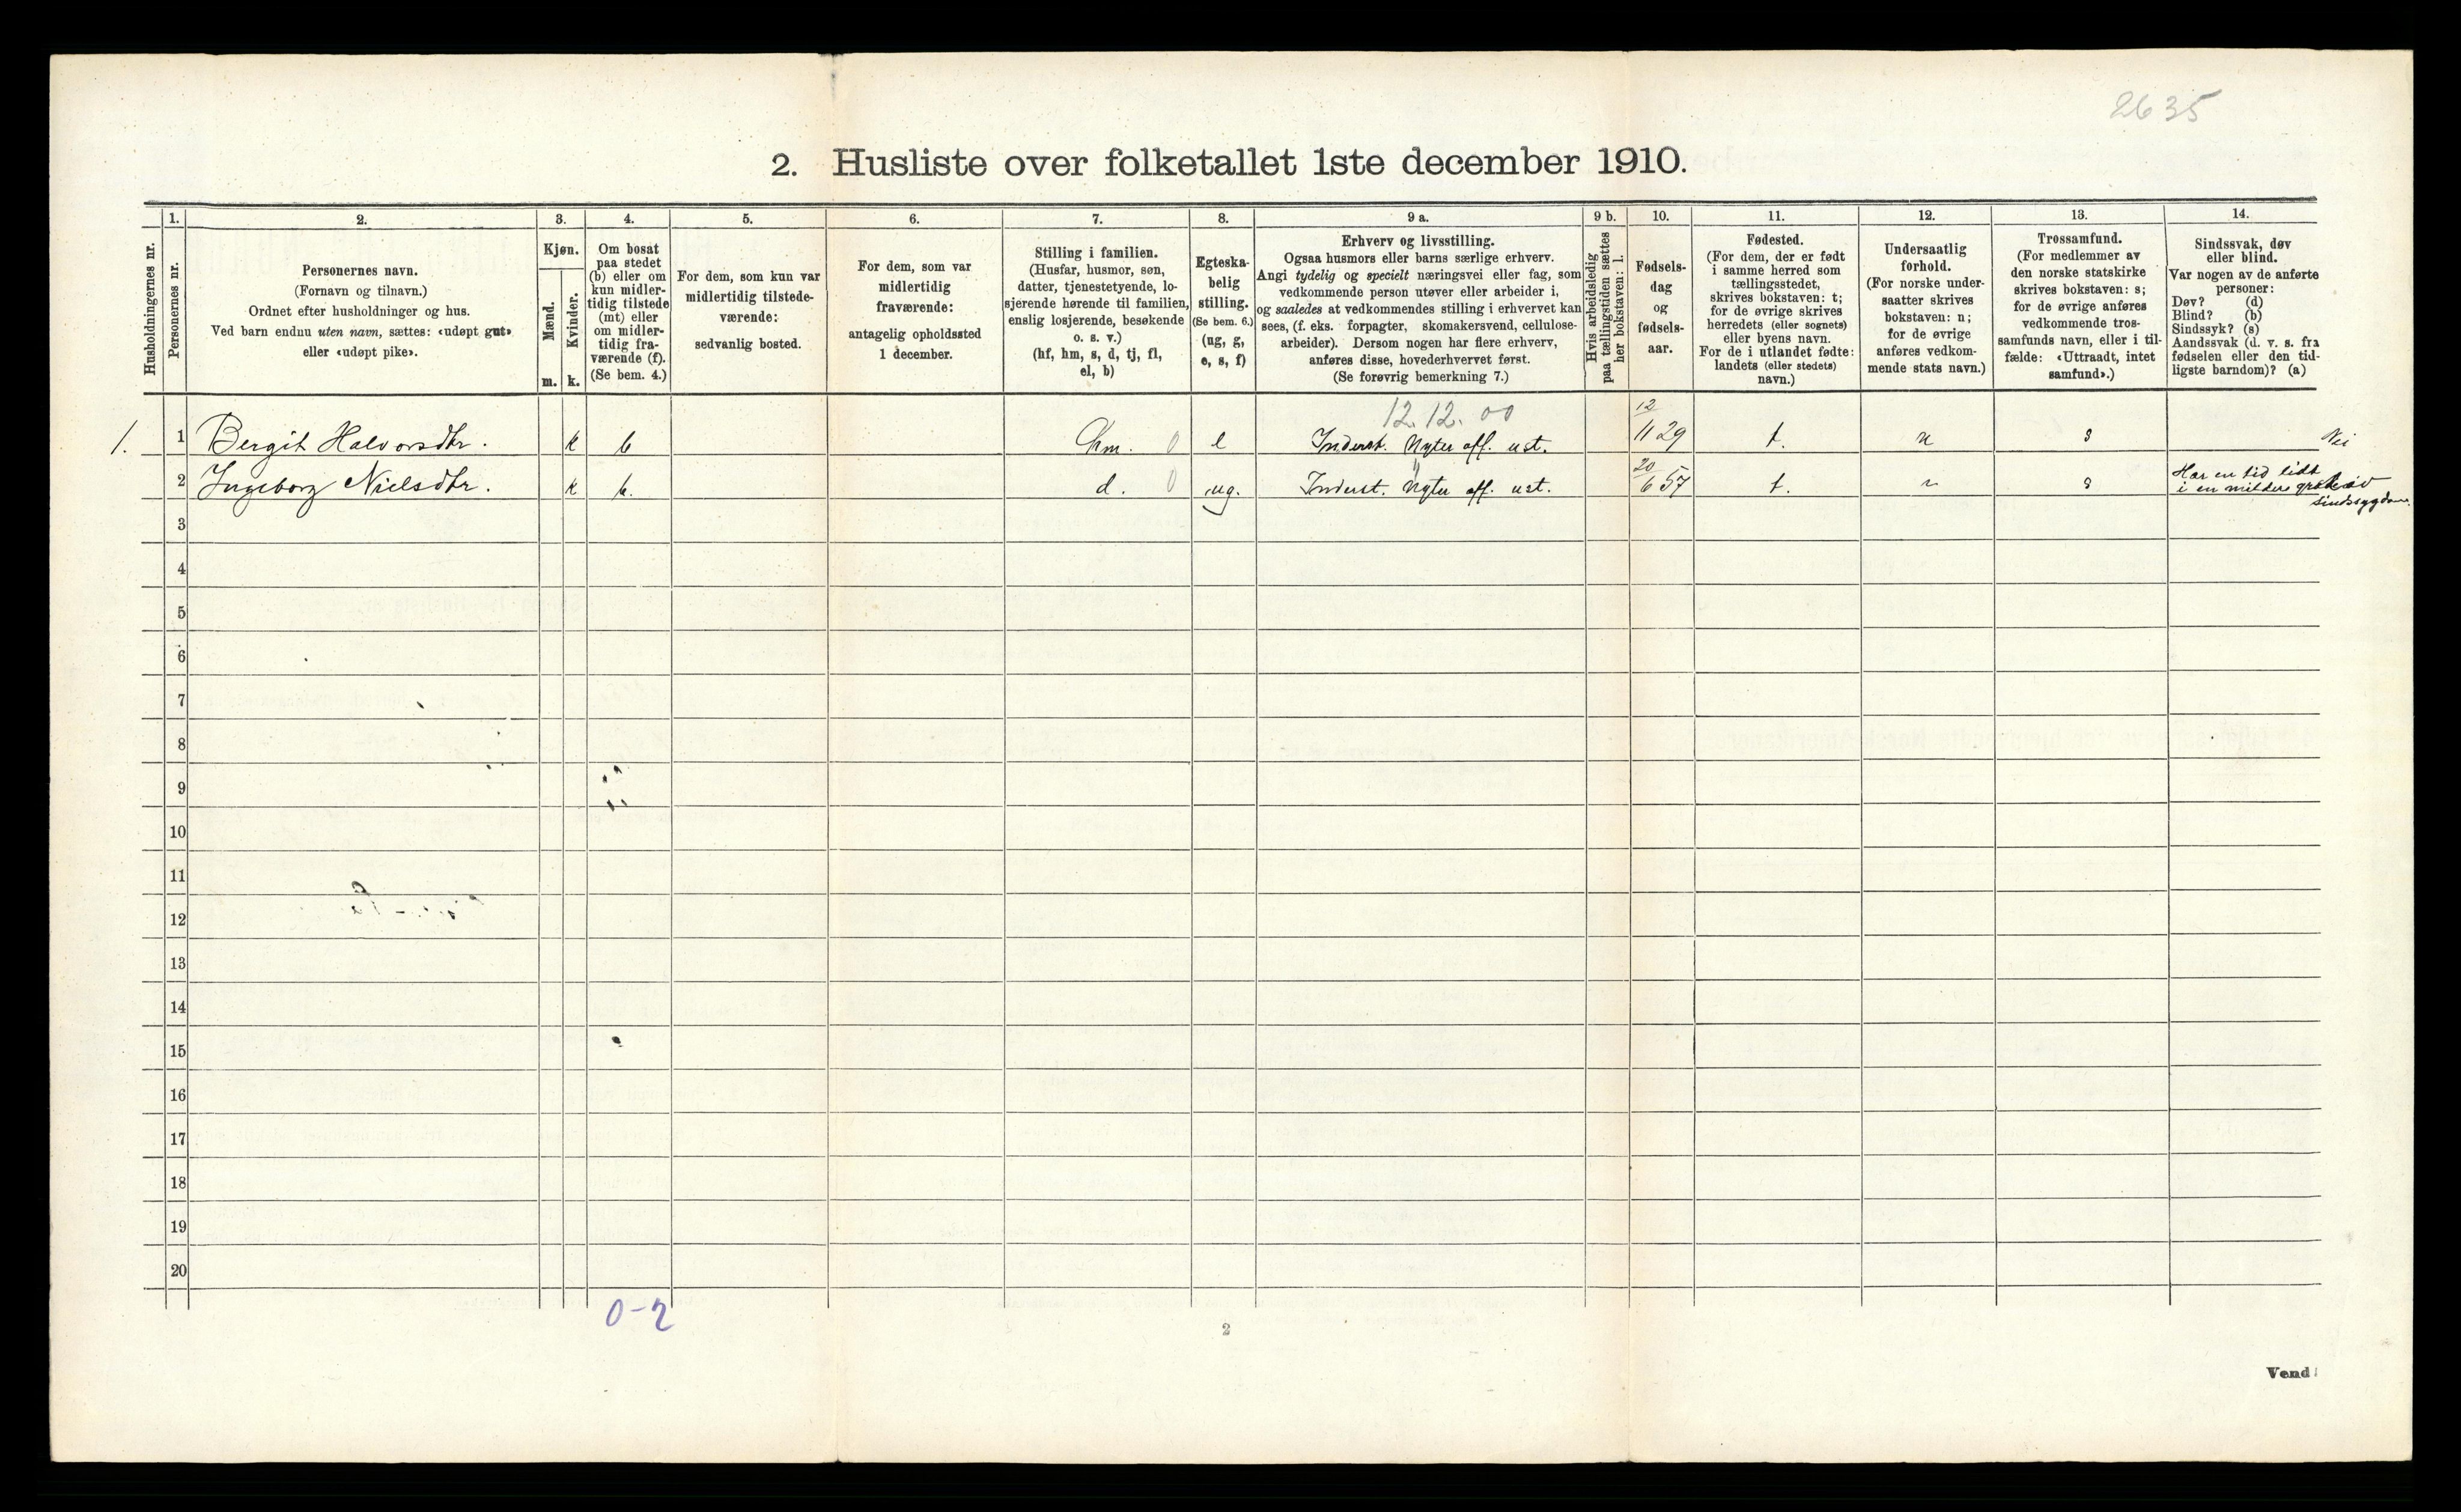 2635
2. Husliste over folketallet 1ste december 1910.
Husholdningernes nr.
1.
Personernes nr.
2.
Personernes navn.
(Fornavn og tilnavn.)
Ordnet efter husholdninger og hus.
Ved barn endnu uten navn, sættes: «udøpt gut»
eller «udøpt pike».
3.
Kjøn.
Mænd.
Kvinder.
m. k.
4.
Om bosat
paa stedet
(b) eller om
kun midler-
tidig tilstede
(mt) eller
om midler-
tidig fra-
værende (f).
(Se bem. 4.)
5.
For dem, som kun var
midlertidig tilstede-
værende:
sedvanlig bosted.
6.
For dem, som var
midlertidig
fraværende:
antagelig opholdssted
1 december.
7.
Stilling i familien.
(Husfar, husmor, søn,
datter, tjenestetyende, lo-
sjerende hørende til familien,
enslig losjerende, besøkende
o. s. v.)
(hf, hm, s, d, tj, fl,
el, b)
8.
Egteska-
belig
stilling.
(Se bem. 6.)
(ug, g,
e, s, f)
9 a.
Erhverv og livsstilling.
Ogsaa husmors eller barns særlige erhverv.
Angi tydelig og specielt næringsvei eller fag, som
vedkommende person utøver eller arbeider i,
og saaledes at vedkommendes stilling i erhvervet kan
sees, (f. eks. forpagter, skomakersvend, cellulose-
arbeider). Dersom nogen har flere erhverv,
anføres disse, hovederhvervet først.
(Se forøvrig bemerkning 7.)
9 b.
Hvis arbeidsledig
paa tællingstiden sættes
her bokstaven: l.
10.
Fødsels-
dag
og
fødsels-
aar.
11.
Fødested.
(For dem, der er født
i samme herred som
tællingsstedet,
skrives bokstaven: t;
for de øvrige skrives
herredets (eller sognets)
eller byens navn.
For de i utlandet fødte:
landets (eller stedets)
navn.)
12.
Undersaatlig
forhold.
(For norske under-
saatter skrives
bokstaven: n;
for de øvrige
anføres vedkom-
mende stats navn.)
13.
Trossamfund.
(For medlemmer av
den norske statskirke
skrives bokstaven: s;
for de øvrige anføres
vedkommende tros-
samfunds navn, eller i til-
fælde: «Uttraadt, intet
samfund».)
14.
Sindssvak, døv
eller blind.
Var nogen av de anførte
personer:
Døv? (d)
Blind? (b)
Sindssyk? (s)
Aandssvak (d. v. s. fra
fødselen eller den tid-
ligste barndom)? (a)
12.12.00
1. 1 Bergit Halvorsdtr. k b hm. 0 e Inderst. Nyter off. ust. 12/11 29 t. n s Nei
2 Ingeborg Nielsdtr. k b. d. 0 ug. Inderst. Nyter off. ust. 20/6 57 t. n s Har en tid lidt
i en mildere grad av
sindssygdom.
3
4
5
6
7
8
9
10
11
12
13
14
15
16
17
18
19
20
0-2
2
Vend!